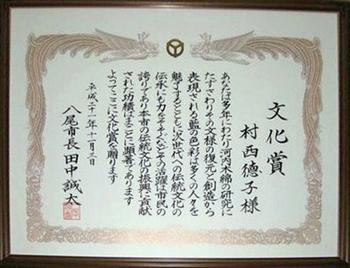 文化賞
村西徳子様
あなたは多年にわたり河内木綿の研究に
たずさわりその文様の復元と創造から
表現される藍の色彩は多くの人々を
魅了するとともに次世代への伝統文化の
伝承にも力をそそぐなどその活躍は市民の
誇りであり本市の伝統文化の振興に貢献
された功績はまことに顕著であります
よってここに文化賞を贈ります
平成二十一年十一月三日
八尾市長 田中誠太